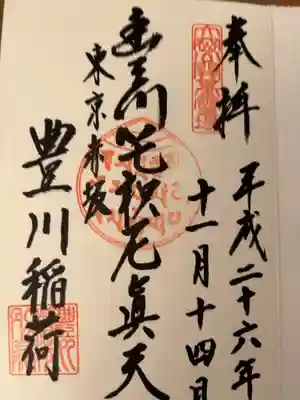 奉拝
平成二十六年
十一月十四日
豊川吒枳尼眞天
東京赤坂
豊川稲荷